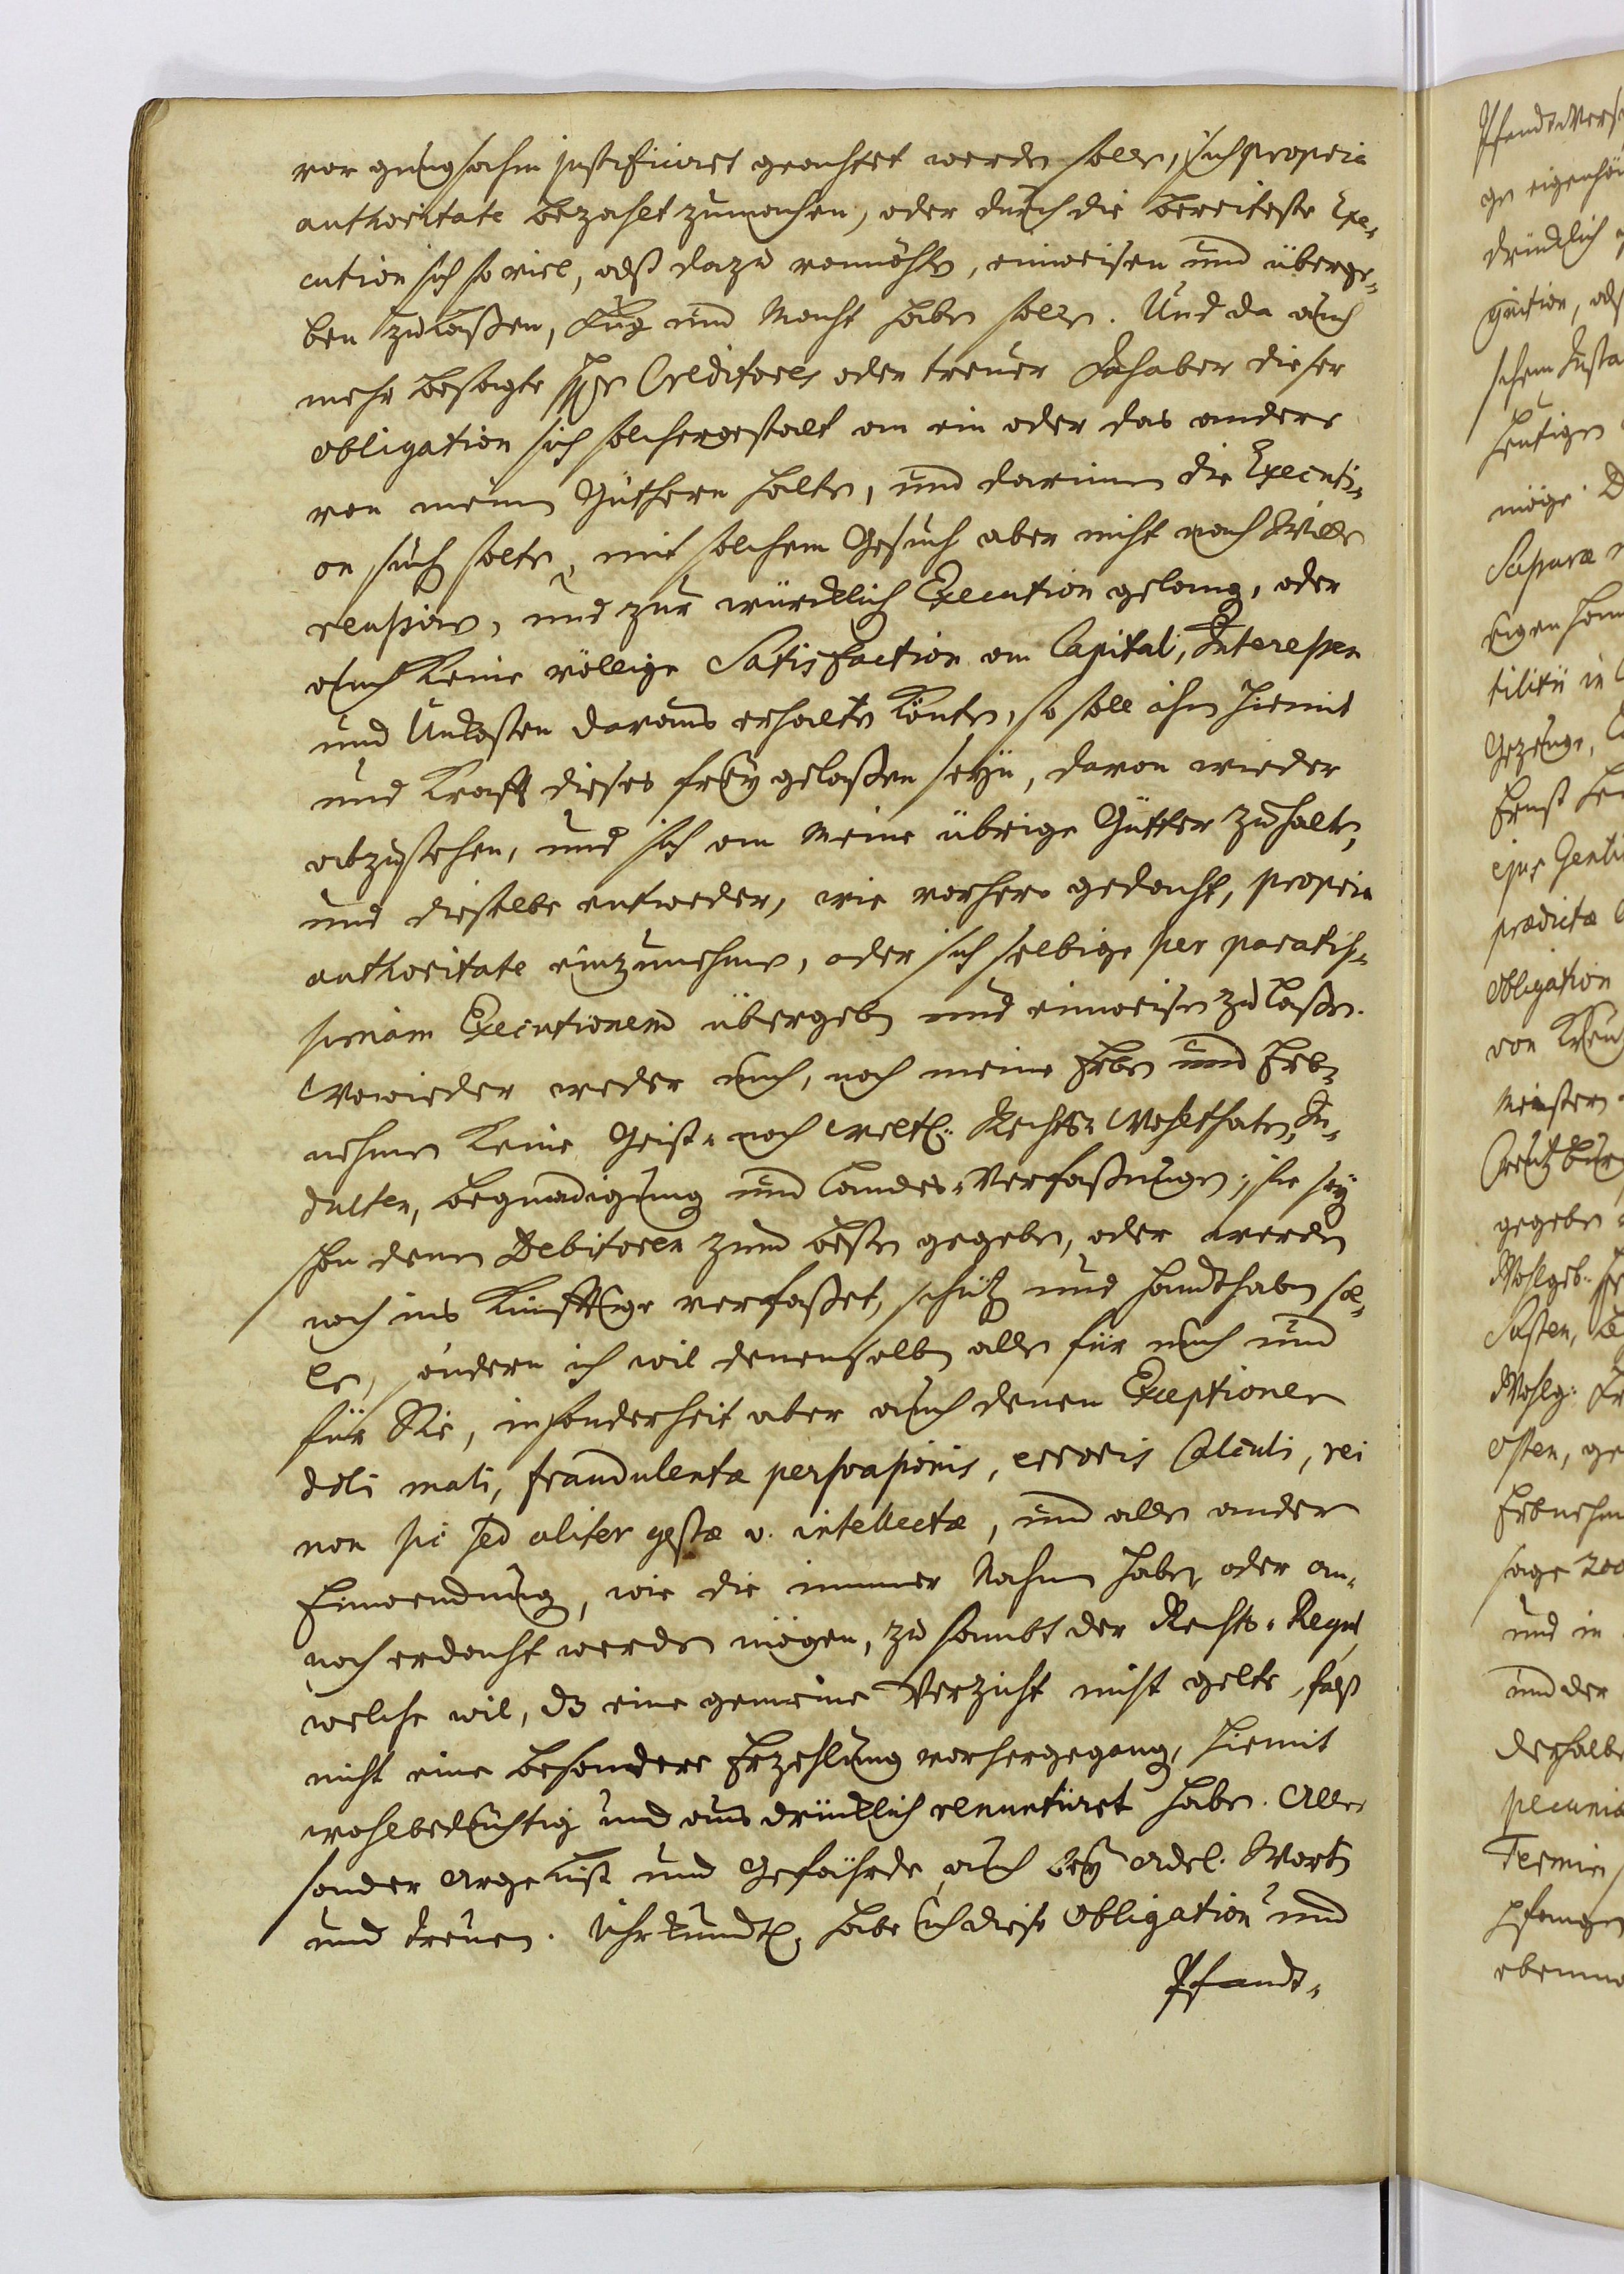 vor gnugsahm justificiret geachtet werden sollen, sich propria
authoritate bezahlt zumachen, oder durch die bereiteste Exe-
cution sich so viel, alß dazu vonnöhten, einweisen und überge-
ben zulaßen, Fug und Macht haben sollen. Und da auch
mehr besagte HH. Creditores oder treuer Inhaber dieser
obligation sich solchergestalt an ein oder das andere
von meinen Güthern halten, und darinnen die Executi-
on suchen solten, mit solchem Gesuch aber nicht nach Willen
reussiren, und zur würcklichen Execution gelangen, oder
auch keine völlige Satisfaction am Capital, Interessen
und Unkosten daraus erhalten könten, so soll ihnen hiemit
und Krafft dieses frey gelaßen seyn, davon wieder
abzustehen, und sich an meine übrige Gütter zuhalten,
und dieselbe entweder, wie vorhero gedacht, propria
authoritate einzunehmen, oder sich selbige per paratis-
simam Executionem übergeben und einweisen zulaßen.
Wowieder weder mich, noch meine Erben und Erb-
nehmen keine Geist- noch weltl. Rechts-Wohlthaten, In-
dulten, begnadigung und Landes-Verfaßungen, sie seyn
schon denen Debitoren zum besten gegeben, oder werden
noch ins Künfftige verfaßet, schützen und handthaben sol-
len, sondern ich wil denenselben allen für mich und
für Sie, insonderheit aber auch denen Exceptionen
doli mali, fraudulentæ persvasionis, erroris Calculi, rei
non sic sed aliter gestæ v. intellectæ, und allen andern
Einwendungen, wie die immer Nahmen haben oder an-
noch erdacht werden mögen, zu sambt der Rechts-Regul,
welche wil, dz eine gemeine Verzicht nicht gelte, falß
nicht eine besondere Erzehlung vorhergegangen, hiemit
wohlbedächtig und ausdrücklich renuntiiret haben. Alles
sonder Argelist und Gefährde, auch bey adel. Worten
und treuen. Uhrkundtl. habe ich diese Obligation und
Pfandt-